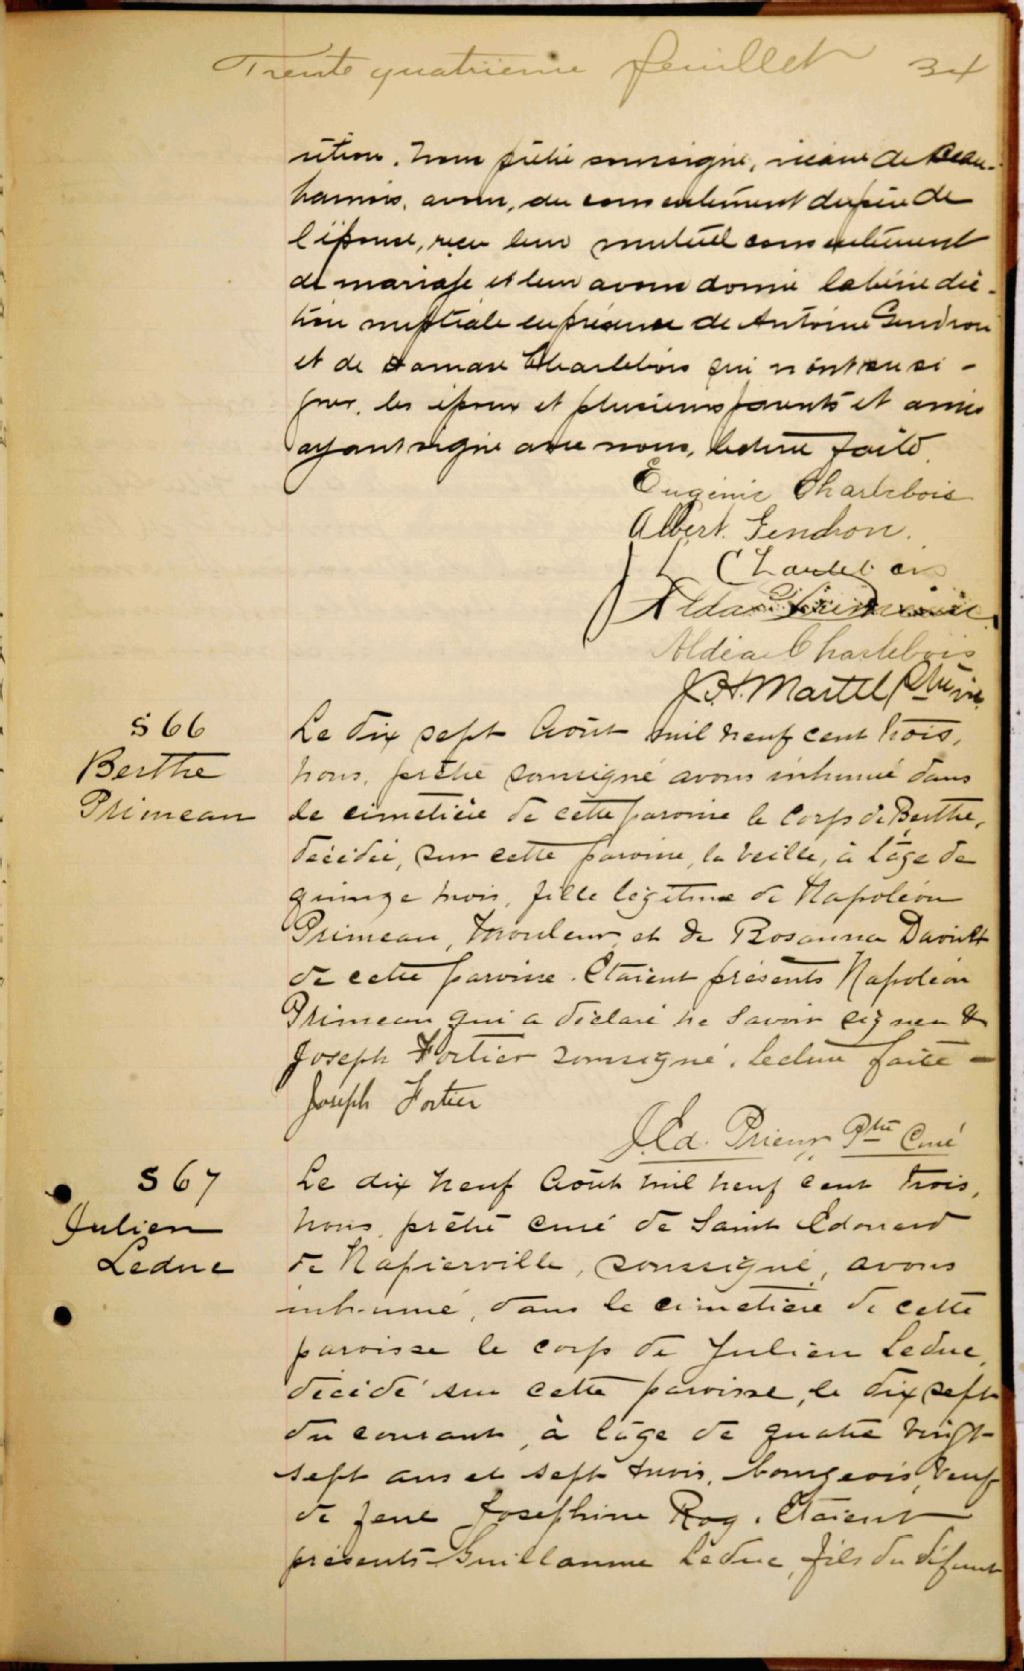 Trente quatrieme feuillet 34
sition. Nous prêtre soussigné, vicaire de Beau-
harnois, avons, du consentement du père de
l'épouse, reçu leur mutuel consentement
de mariage et leur avons donné la bénédic-
tion nuptiale en présence de Antoine Gendron
et de Charlebois qui n'ont su si-
gner, les époux et plusieurs parents et amis
ayant signé avec nous, lecture faite.
Eugénie Charlebois
Albert Gendron.
J L Charlebois
Alda
Aldéa Charlebois
J.H. Martel Ptre vic.
S 66
Berthe
Primeau
Le dix sept Août mil neuf cent trois,
nous, prêtre soussigné avons inhumé dans
le cimetière de cette paroisse le corps de Berthe,
décédée, sur cette paroisse, la veille, à l'âge de
quinze mois, fille légitime de Napoléon
Primeau, mouleur, et de Rosanna Davioult
de cette paroisse. Etaient présents Napoléon
Primeau qui a déclaré ne savoir signer &
Joseph Fortier soussigné. Lecture faite -
Joseph Fortier
J. Ed. Prieur Ptre Curé
S 67
Julien
Leduc
Le dix neuf Août mil neuf cent trois,
nous, prêtre curé de Saint Edouard
de Napierville, soussigné, avons
inhumé, dans le cimetière de cette
paroisse le corps de Julien Leduc,
décédé sur cette paroisse, le dix sept
du courant, à l'âge de quatre vingt-
sept ans et sept mois, bourgeois, veuf
de feue Josephine Roy. Etaient
présents Guillaume Leduc, fils du défunt